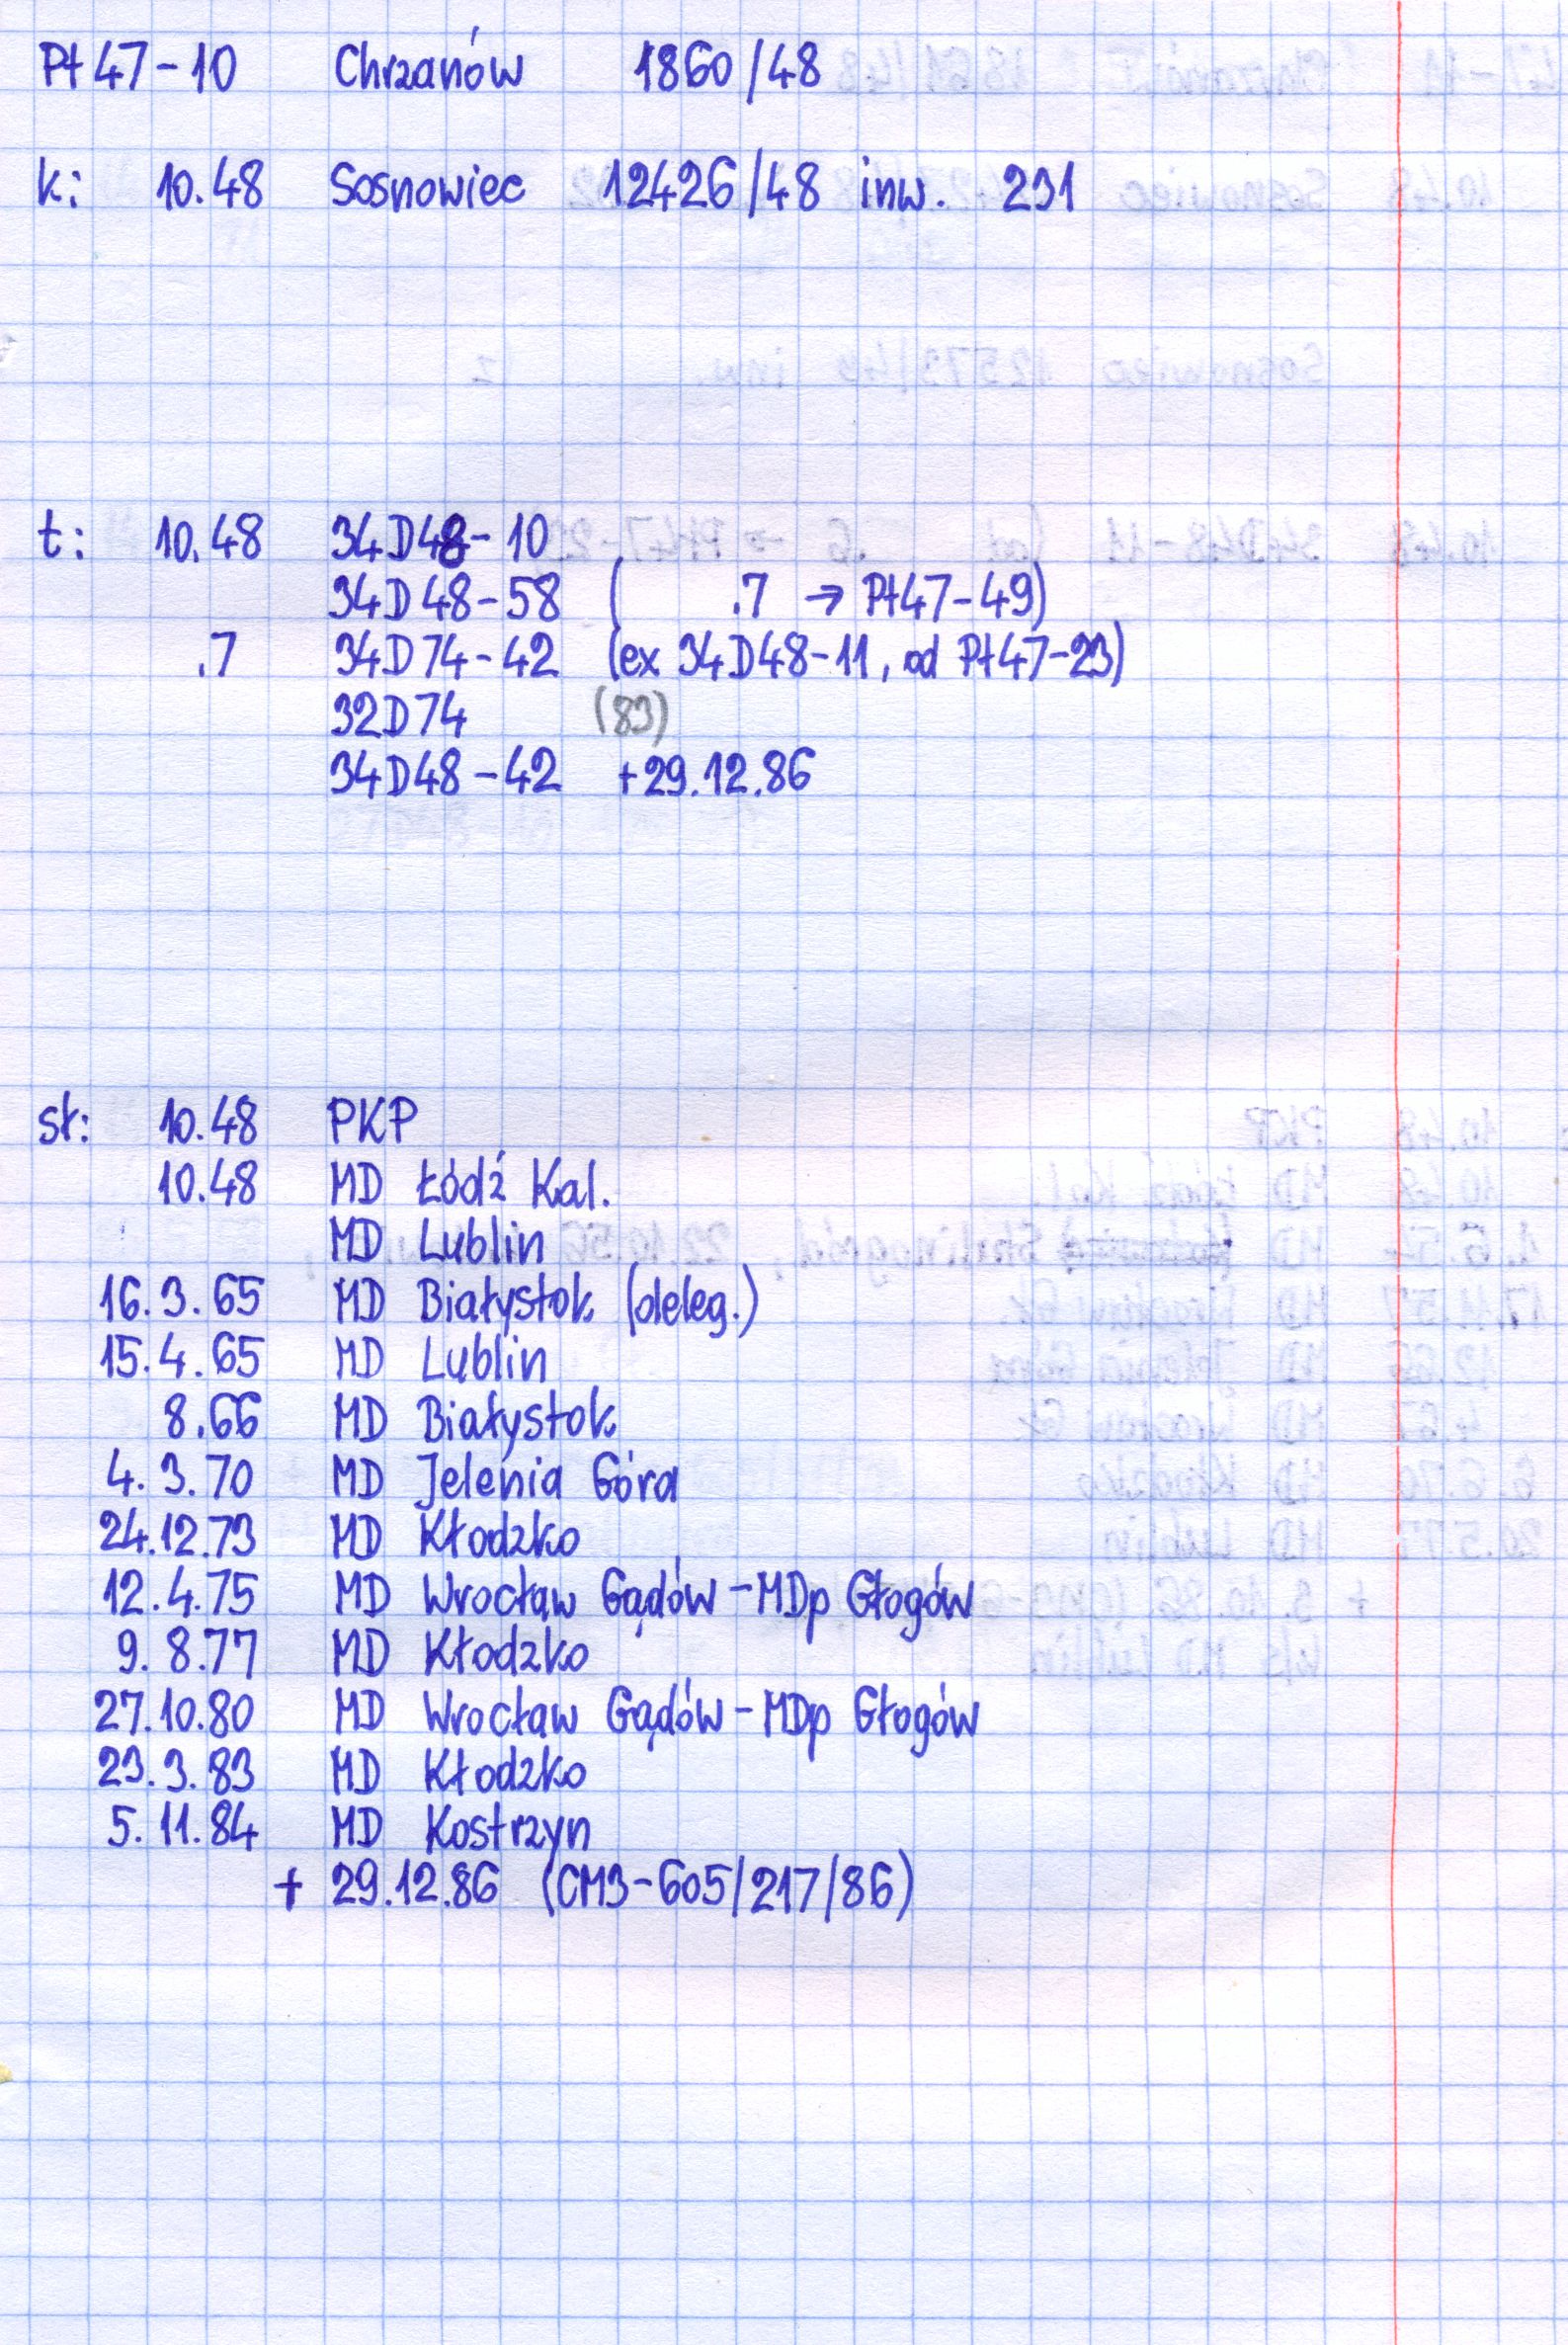 Pt47-10 Chrzanów 1860/48
k: 10.48 Sosnowiec 12426/48 inw. 231
t: 10.48 34D48-10
34D48-58 ( .7 → Pt47-49)
.7 34D74-42 (ex 34D48-11, od Pt47-23)
32D74 (83)
34D48-42 +29.12.86
st: 10.48 PKP
10.48 MD Łódź Kal.
MD Lublin
16.3.65 MD Białystok (deleg.)
15.4.65 MD Lublin
8.66 MD Białystok
4.3.70 MD Jelenia Góra
24.12.73 MD Kłodzko
12.4.75 MD Wrocław Gądów-MDp Głogów
9.8.77 MD Kłodzko
27.10.80 MD Wrocław Gądów-MDp Głogów
23.3.83 MD Kłodzko
5.11.84 MD Kostrzyn
+ 29.12.86 (CM3-605/217/86)